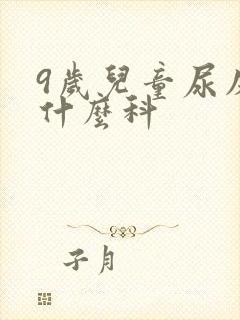 9歲兒童尿
什麼科
子月